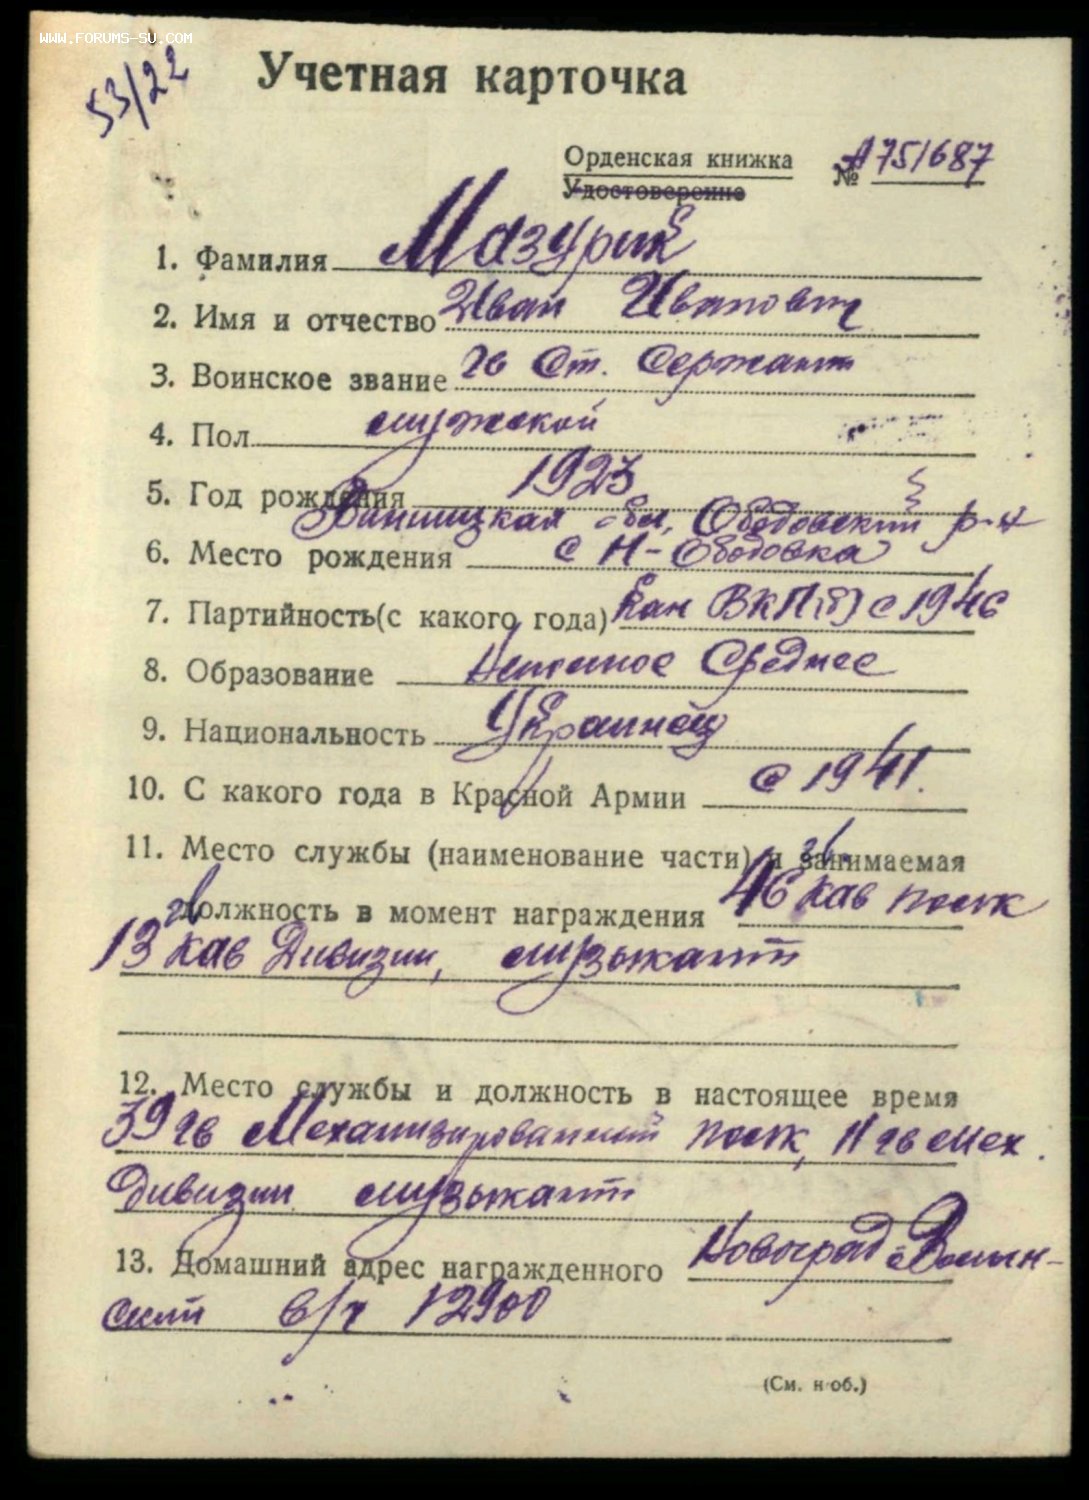 WWW.FORUMS-SU.COM
53/22
Учетная карточка
Орденская книжка № А751687
Удостоверение
1. Фамилия Мазурик
2. Имя и отчество Иван Иванович
3. Воинское звание гв Ст. Сержант
4. Пол мужской
5. Год рождения 1923
Винницкая обл, Ободовский р-н
6. Место рождения с Н-Ободовка
7. Партийность(с какого года) Кан ВКП(б) с 1946
8. Образование Неполное Среднее
9. Национальность Украинец
10. С какого года в Красной Армии с 1941.
11. Место службы (наименование части) и занимаемая
должность в момент награждения 46 гв. Кав полк
13 гв Кав Дивизии, музыкант
12. Место службы и должность в настоящее время
39 гв Механизированный полк, 11 гв мех.
Дивизии музыкант
13. Домашний адрес награжденного Новоград-Волын-
ский в/ч 12900
(См. н об.)